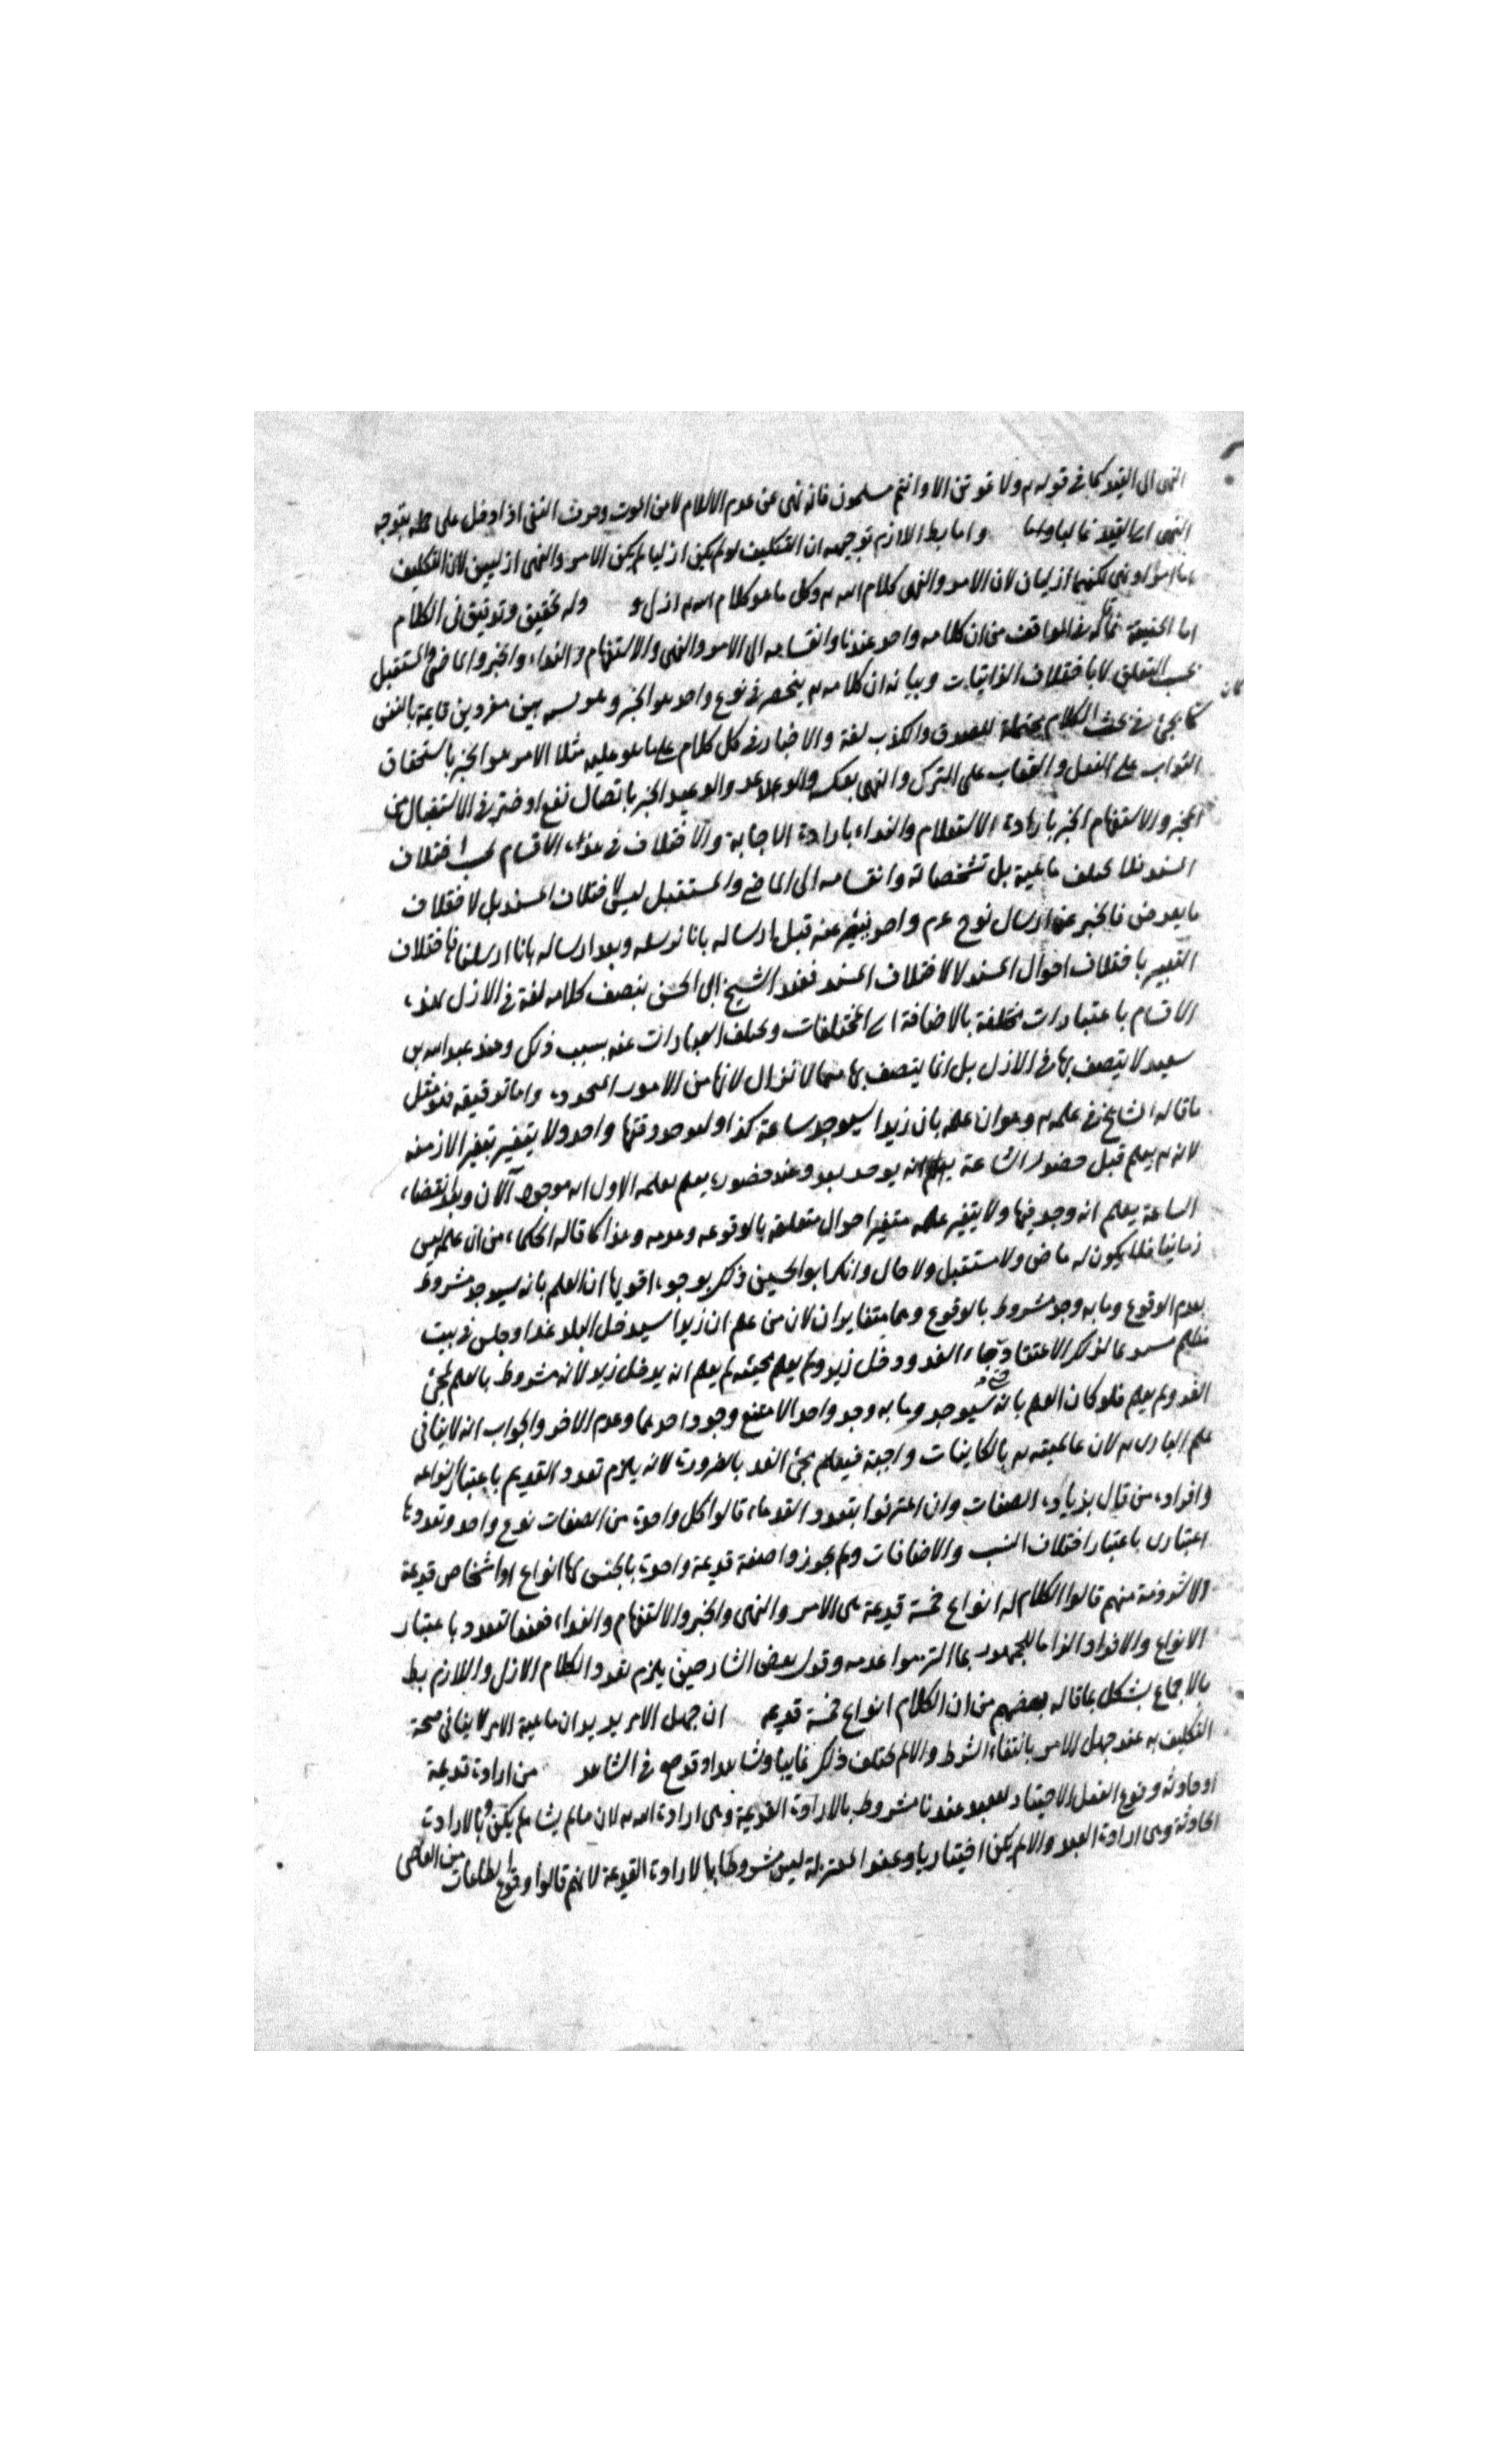 النهى الى القيد كما فى قوله تم ولا تموتن الا وانتم مسلمون فانه نهى عن عدم الاسلام لا من الموت وحرف النفى اذا دخل على جملة يتوجه
النهى الى القيد غالبا واما واما بطلا اللازم توجيهه ان التكليف لو لم يكن ازليا لم يكن الامر والنهى ازليين لان التكليف
اما امر او نهى لكنهما ازليان لان الامر والنهى كلام الله تم وكل ما هو كلام الله تم ازلى وله تحقيق وتوفيق فى الكلام
اما الحقيقة فما ذكر فى المواقف من ان كلامه واحد عندنا وانقسامه الى الامر والنهى والاستفهام والنداء والخبر والماضى والمستقبل
بحسب التعلق لا باختلاف الذاتيات وبيانه ان كلامه تم ينحصر فى نوع واحد هو الخبر وهو نسبة بين مفردين قايمة بالنفس
كما يجئ فى بحث الكلام محتملة للصدق والكذب لغة والاخبار فى كل كلام على ما هو عليه مثلا الامر هو الخبر باستحقاق
الثواب على الفعل والعقاب على الترك والنهى بعكسه والوعد والوعيد الخبر باتصال نفع او ضر فى الاستقبال من
المخبر والاستفهام الخبر بارادة الاستعلام والنداء بارادة الاجابة والاختلاف فى هذه الاقسام بحسب اختلاف
المسند فلا يختلف ماهية بل تشخصاته وانقسامه الى الماضى والمستقبل ليس لاختلاف المسند بل لاختلاف
ما يعرض فالخبر عن ارسال نوح عرم واحد فيعبر عنه قبل ارساله بانا نرسله وبعد ارساله بانا ارسلنا فاختلاف
التعبير باختلاف احوال المسند لا لاختلاف المسند فعند الشيخ ابى الحسن يتصف كلامه لغة فى الازل بهذه
الاقسام باعتبارات مختلفة بالاضافة الى المختلفات ويختلف العبارات عنه بسبب ذلك وعند عبد الله بن
سعيد لا يتصف بها فى الازل بل انما يتصف بها فيما لا تزال لانها من الامور المتجددة واما توفيقه فهو مثل
ما قاله المشايخ فى علمه تم وهو ان علمه بان زيدا سيوجد ساعة كذا واحد ولا يتغير بتغير الازمنة
لانه تم يعلم قبل حضور الساعة انه يوجد بعد وعند حضوره يعلم بعلمه الاول انه موجود الآن وبعد انقضاء
الساعة يعلم انه وجد فيها ولا يتغير علمه بتغير احوال متعلقه بالوقوعه وعدمه وهذا كما قاله الحكماء من ان علمه ليس
زمانيا فلا يكون له ماض ولا مستقبل ولا حال وانكر ابو الحسين ذلك بوجوه اقويها ان العلم بانه سيوجد مشروط
بعدم الوقوع وما به وجد مشروط بالوقوع وهما متغايران لان من علم ان زيدا سيدخل البلد غدا وجلس فى بيت
مظلم مستديما لذلك الاعتقاد وجاء الغد ودخل زيد ولم يعلم مجيئه لم يعلم انه يدخل زيد لانه مشروط بالعلم بمجئ
الغد ولم يعلم فلو كان العلم بانه سيوجد وما به وجد واحدا لامتنع وجود احدهما وعدم الاخر والجواب انه لا ينافى
علم البارى تم لان عالميته تم بالكاينات واجبة فيعلم مجئ الغد بالضرورة لانه يلزم تعدد القديم باعتبار انواعه
وافراده من قال بزيادة الصفات وان اعترفوا بتعدد القدماء قالوا كل واحدة من الصفات نوع واحد وتعددها
اعتبارى باعتبار اختلاف النسب والاضافات ولم يجوزوا صفة قديمة واحدة بالجنس لها انواع او اشخاص قديمة
الا شرذمة منهم قالوا الكلام له انواع خمسة قديمة هى الامر والنهى والخبر والاستفهام والنداء فمنها لتعدد باعتبار
الانواع والافراد الزاما للجمهور بما التزموا عدمه وقول بعض الشارحين يلزم تعدد الكلام الازلى واللازم بط
بالاجماع يشكل بما قاله بعضهم من ان الكلام انواع خمسة قديمة ان جهل الامر يريد ان ماهية الامر لا ينافى صحة
التكليف به عند جهل الامر بانتفاء الشرط والا لم يختلف ذلك غايبا وشاهدا وقد صح فى الشاهد من ارادة قديمة
او حادثة وقوع الفعل الاختيار للعبد عندنا مشروط بالارادة القديمة وهى ارادة الله تم لان ما لم يشا لم يكن وبالارادة
الحادثة وهى ارادة العبد والا لم يكن اختياريا وعند المعتزلة ليس مشروطا بالارادة القديمة لانهم قالوا وقوع الطاعات من العاصى